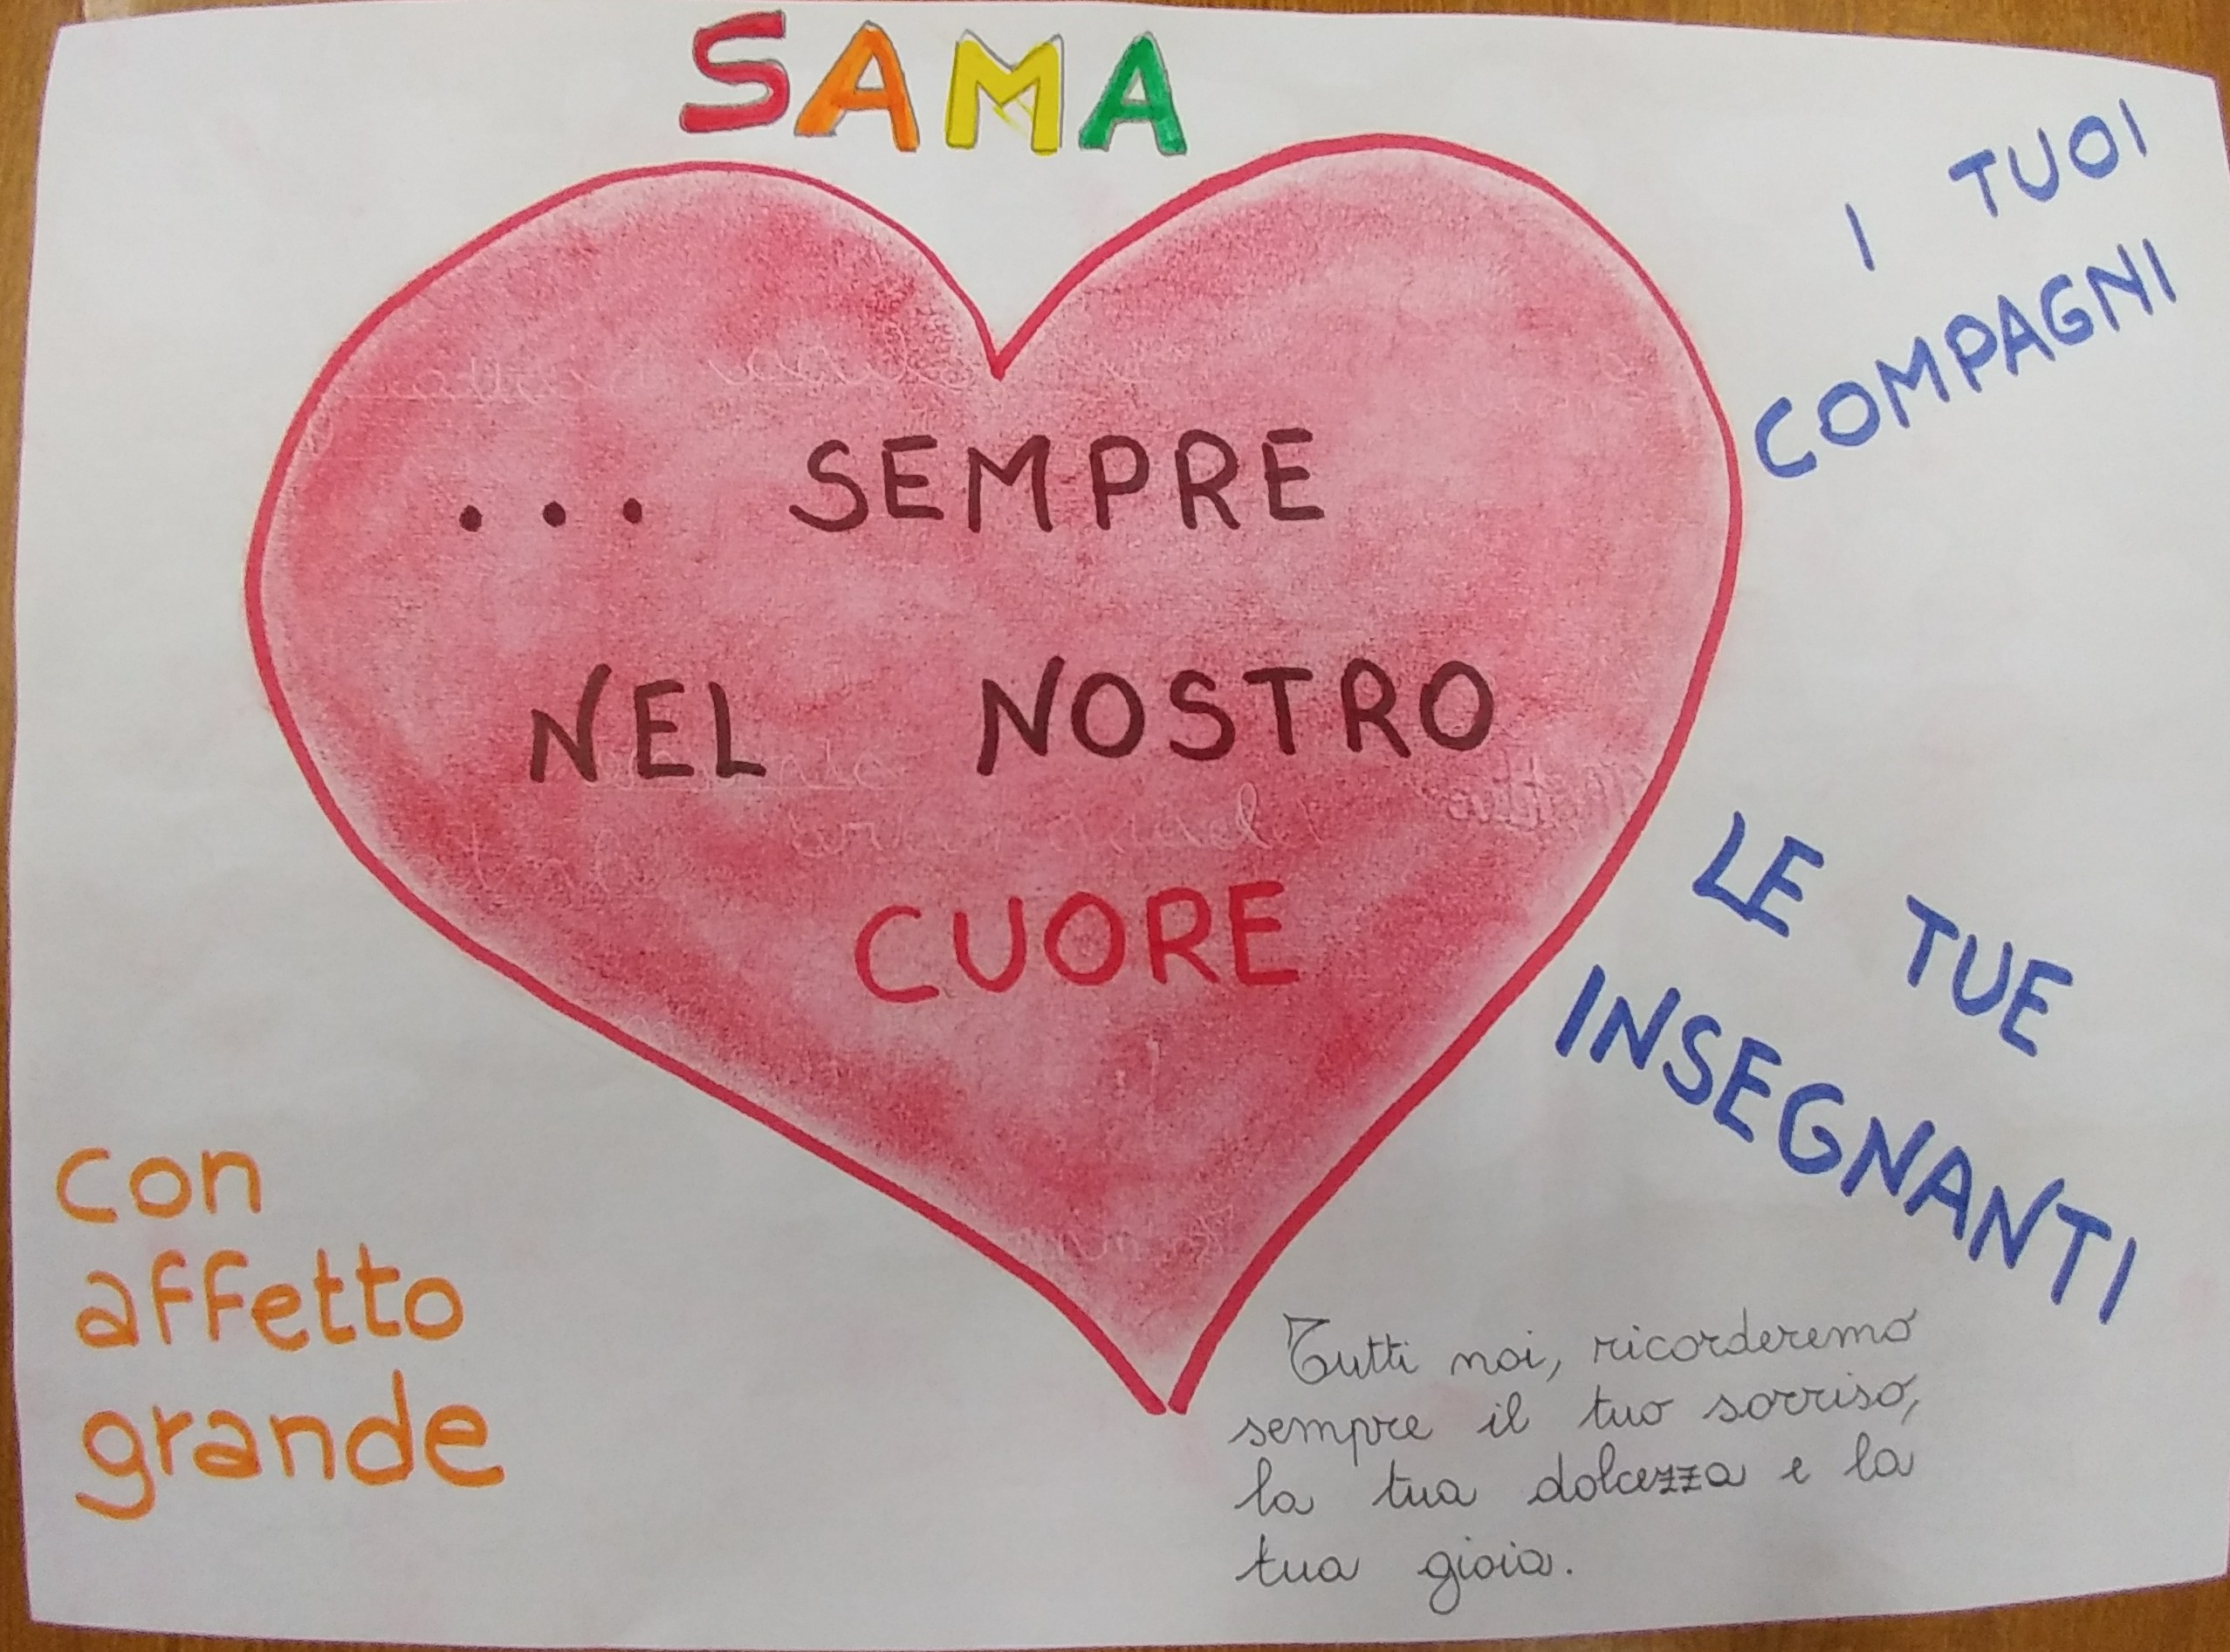 SAMA
I TUOI
COMPAGNI
... SEMPRE
NEL NOSTRO
CUORE
LE TUE
INSEGNANTI
con
affetto
grande
Tutti noi, ricorderemo
sempre il tuo sorriso,
la tua dolcezza e la
tua gioia.